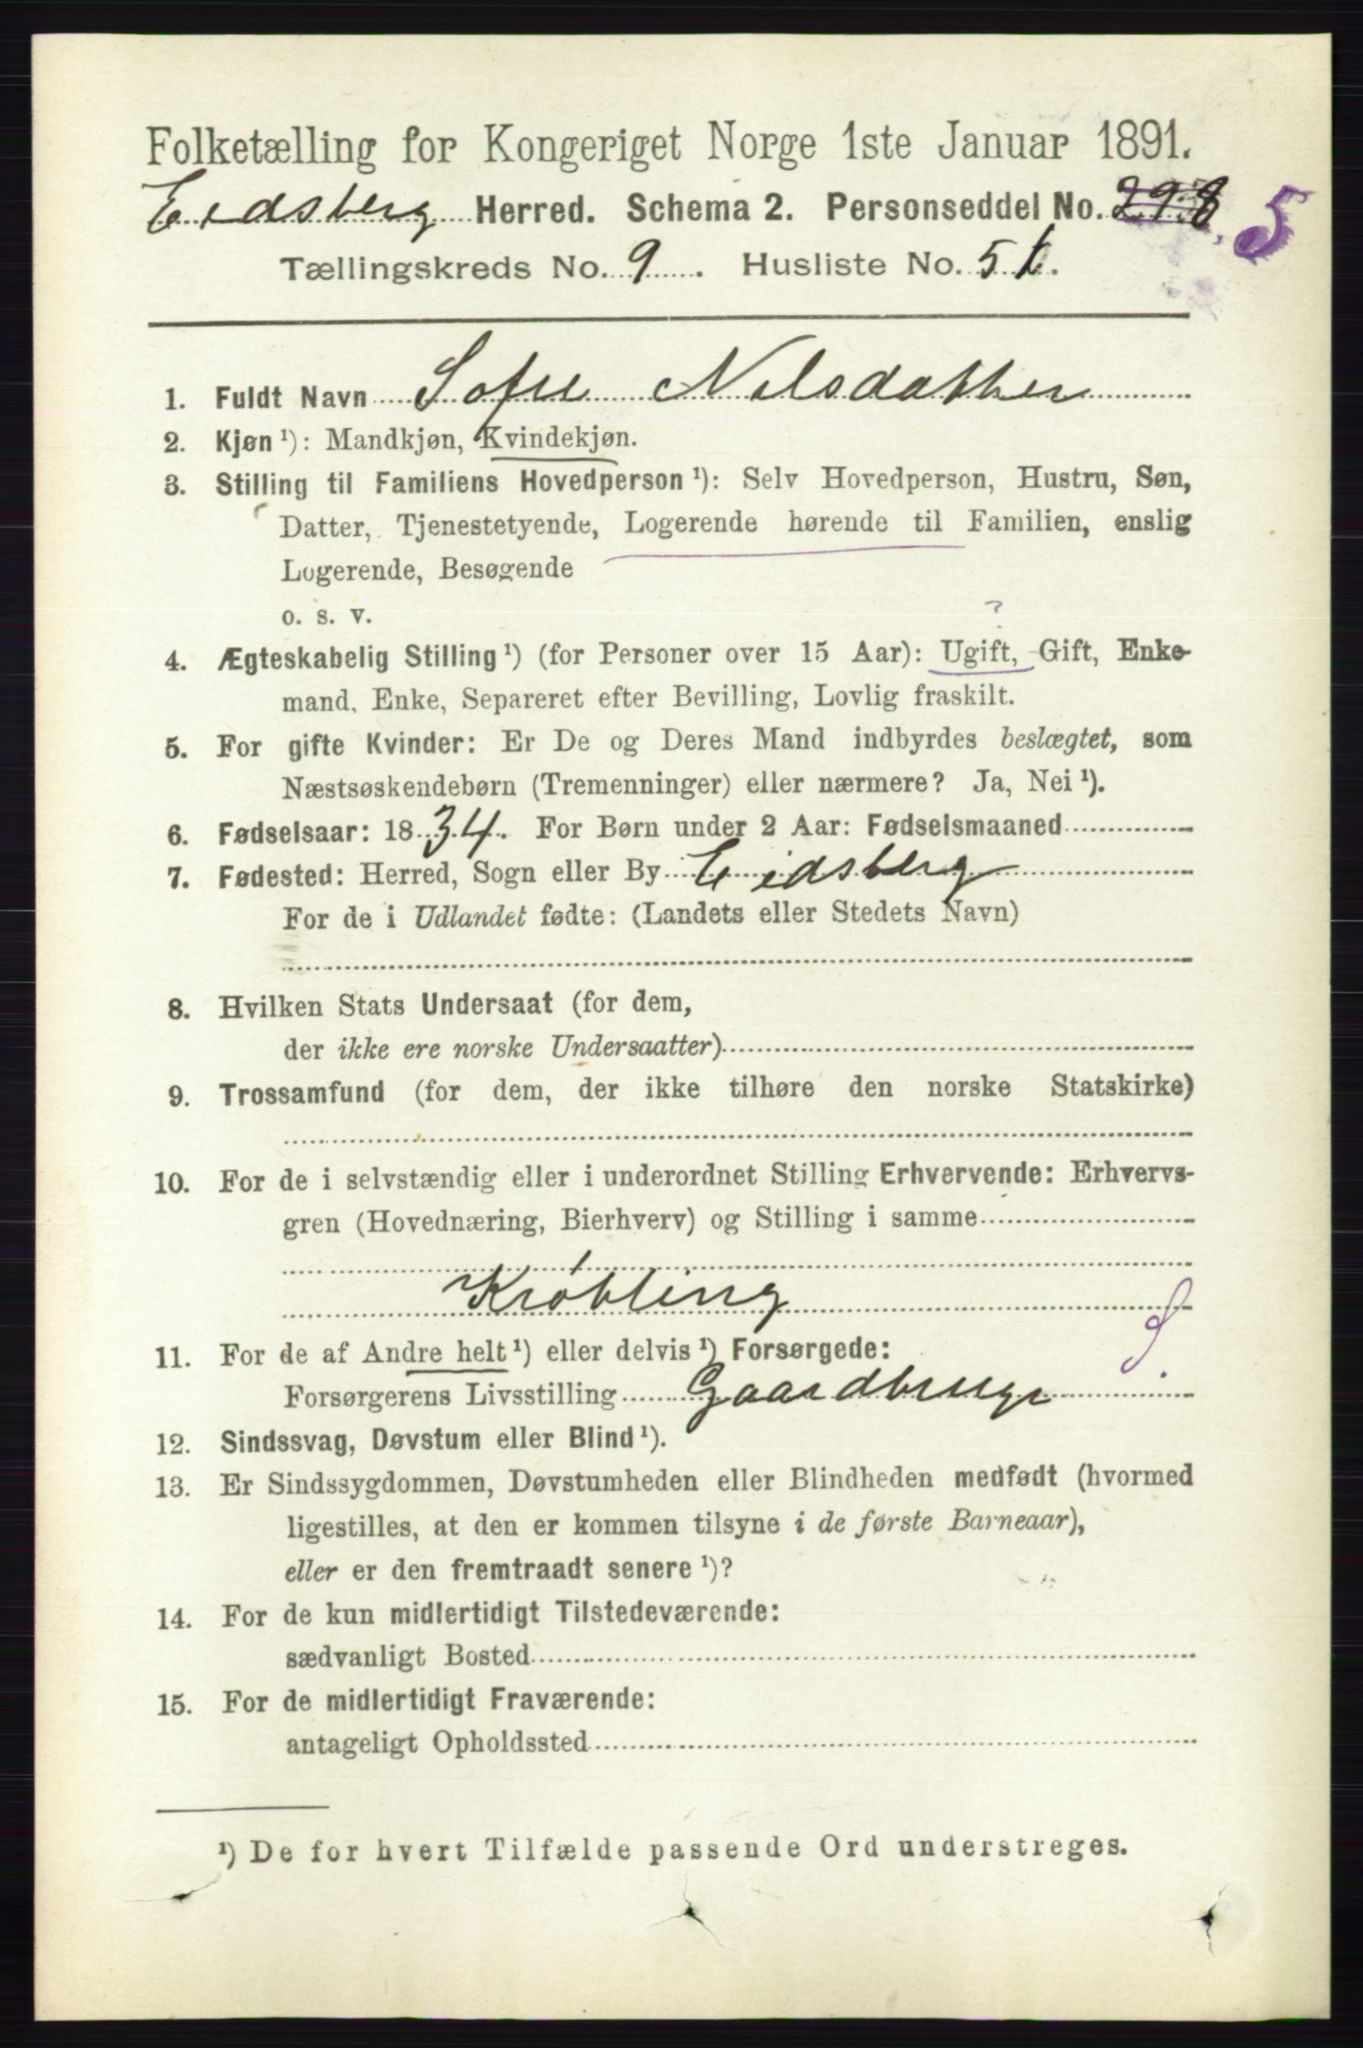 Folketælling for Kongeriget Norge 1ste Januar 1891.
Eidsberg Herred. Schema 2. Personseddel No. 298, 5
Tællingskreds No. 9. Husliste No. 51.
1. Fuldt Navn Sofie Nilsdatter
2. Kjøn ¹): Mandkjøn, Kvindekjøn.
3. Stilling til Familiens Hovedperson ¹): Selv Hovedperson, Hustru, Søn,
Datter, Tjenestetyende, Logerende hørende til Familien, enslig
Logerende, Besøgende
o. s. v.
?
4. Ægteskabelig Stilling ¹) (for Personer over 15 Aar): Ugift, Gift, Enke-
mand, Enke, Separeret efter Bevilling, Lovlig fraskilt.
5. For gifte Kvinder: Er De og Deres Mand indbyrdes beslægtet, som
Næstsøskendebørn (Tremenninger) eller nærmere? Ja, Nei ¹).
6. Fødselsaar: 1834. For Børn under 2 Aar: Fødselsmaaned
7. Fødested: Herred, Sogn eller By Eidsberg
For de i Udlandet fødte: (Landets eller Stedets Navn)
8. Hvilken Stats Undersaat (for dem,
der ikke ere norske Undersaatter)
9. Trossamfund (for dem, der ikke tilhøre den norske Statskirke)
10. For de i selvstændig eller i underordnet Stilling Erhvervende: Erhvervs-
gren (Hovednæring, Bierhverv) og Stilling i samme
Krøbling
11. For de af Andre helt ¹) eller delvis ¹) Forsørgede:
Forsørgerens Livsstilling Gaardbruger
12. Sindssvag, Døvstum eller Blind ¹).
13. Er Sindssygdommen, Døvstumheden eller Blindheden medfødt (hvormed
ligestilles, at den er kommen tilsyne i de første Barneaar),
eller er den fremtraadt senere ¹)?
14. For de kun midlertidigt Tilstedeværende:
sædvanligt Bosted
15. For de midlertidigt Fraværende:
antageligt Opholdssted
¹) De for hvert Tilfælde passende Ord understreges.